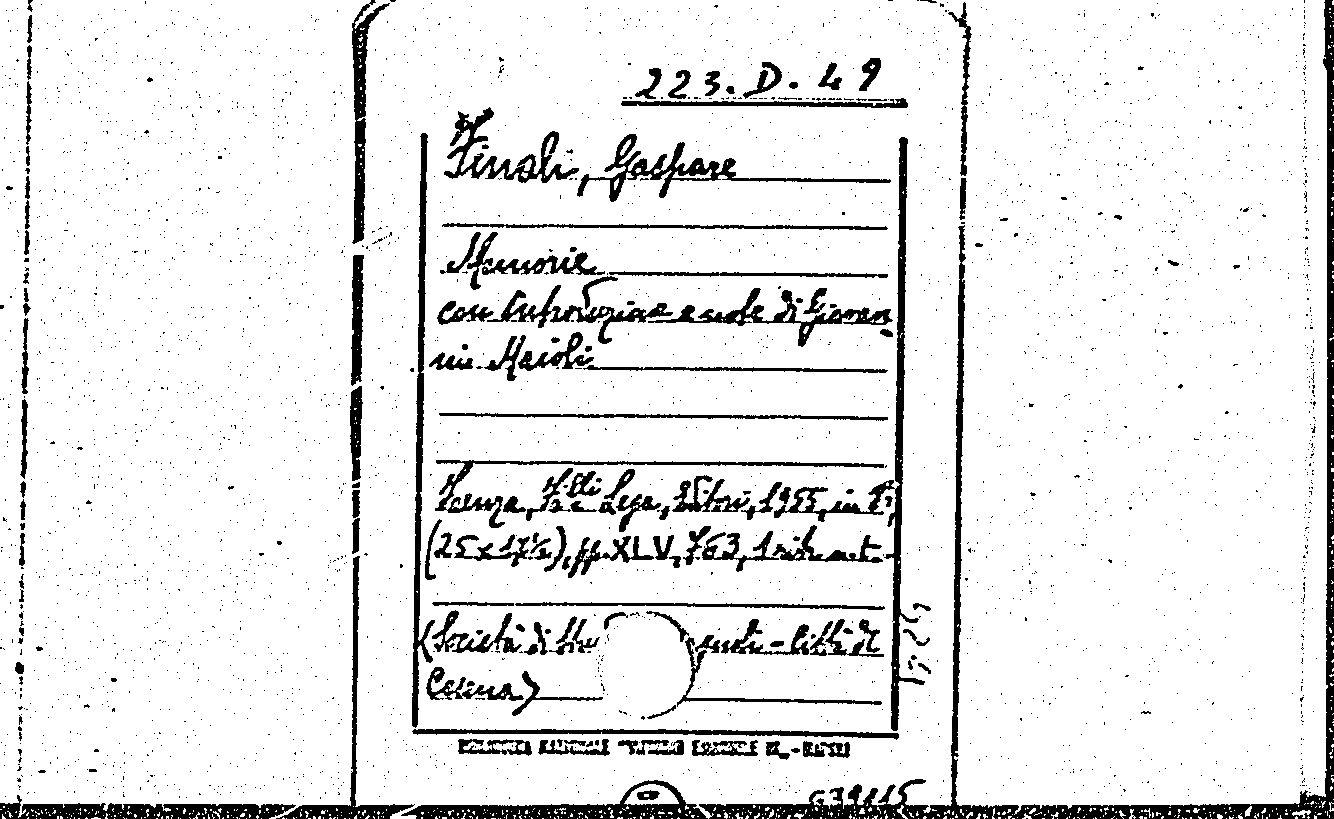 223.D.49
Finali, Gaspare
Memorie
con introduzione e note di Giovan
ni Maioli
Faenza, F.lli Lega, Editori, 1955, in 8º,
(25 x 17½), pp. XLV, 763, 1 rit. n.t.-
(Società di Stu gnoli - Città di
Cesena)
BIBLIOTECA NAZIONALE "VITTORIO EMANUELE III" - NAPOLI